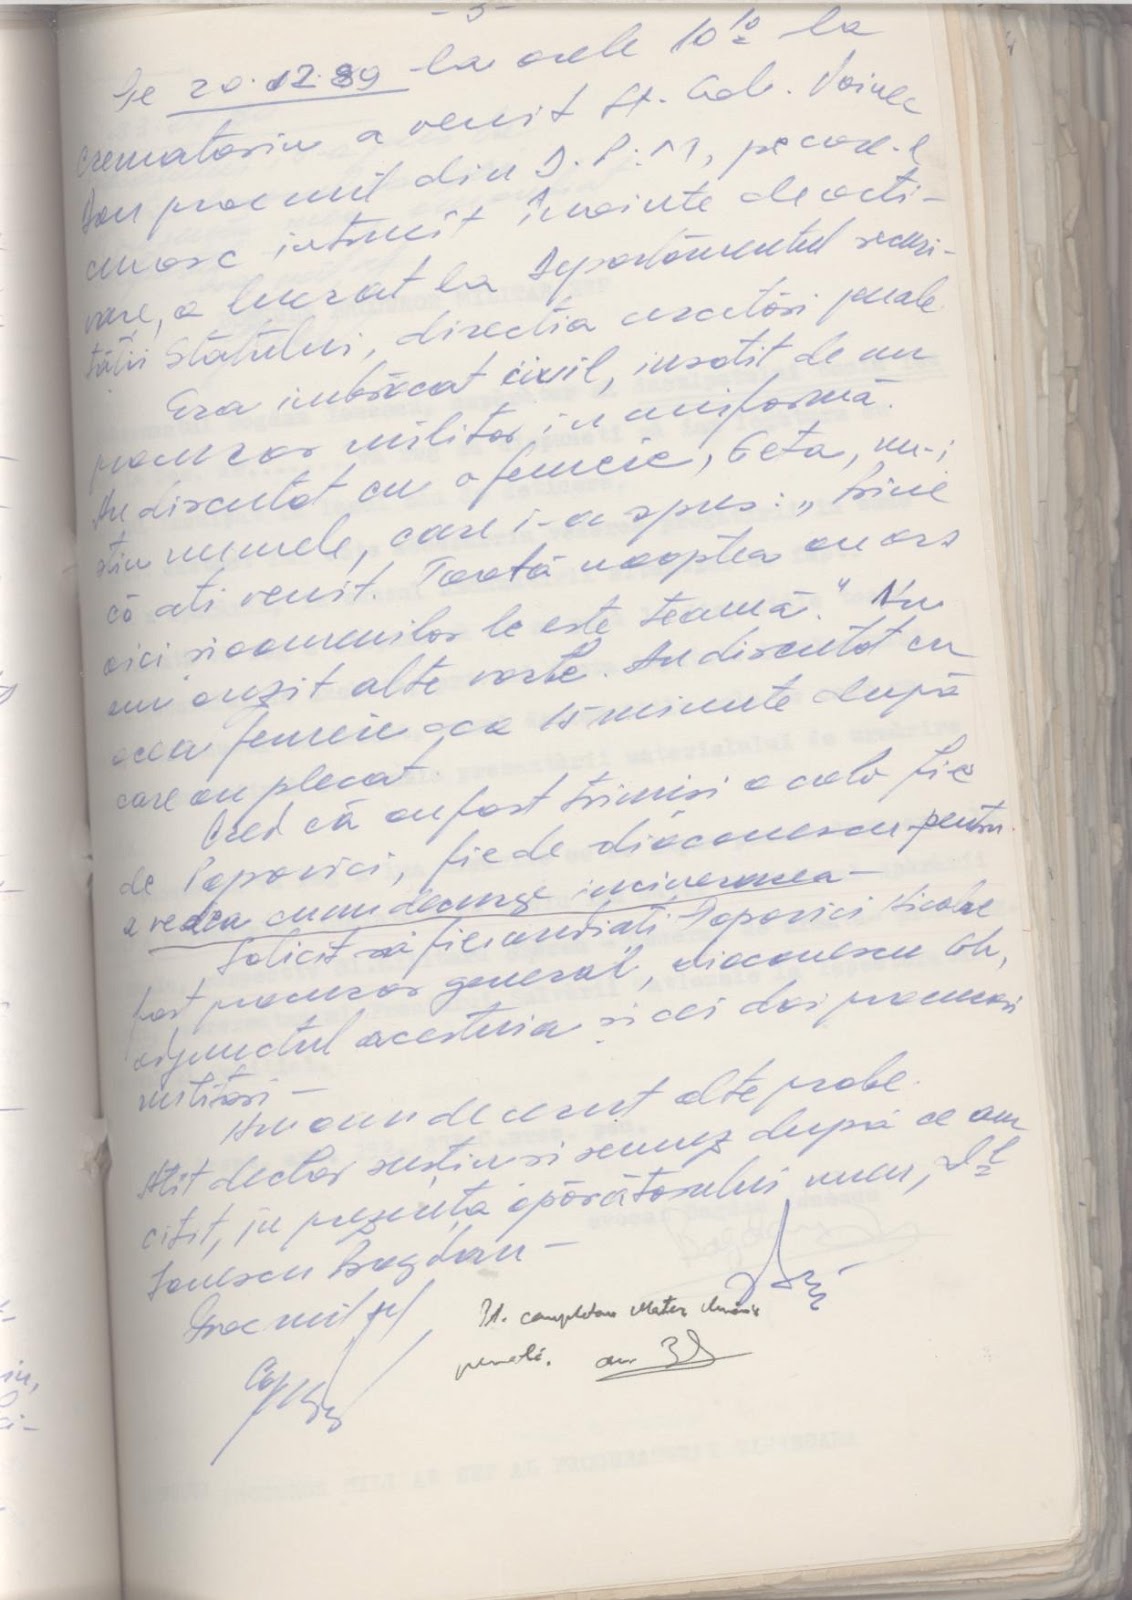 - 5 -
Pe 20.12.89 la orele 10¹⁰ la
crematoriu a venit lt. col. Voinea
Dan proc mil din D.P.M, pe care-l
cunosc întrucît înainte de acti-
vare, a lucrat la Departamentul securi-
tății Statului, direcția cercetări penale
Era îmbrăcat civil, însoțit de un
procuror militar, in uniformă.
Au discutat cu o femeie, Geta, nu-i
știu numele, care i-a spus: „bine
că ați venit. Toată noaptea au ars
aici și oamenilor le este teamă." Nu
am auzit alte vorbe. Au discutat cu
acea femeie cca 15 minute după
care au plecat.
Cred că au fost trimiși acolo fie
de Popovici, fie de Diaconescu pentru
a vedea cum decurge incinerarea -
Solicit să fie audiați Popovici Nicolae
fost procuror general, Diaconescu Gh,
adjunctul acestuia și cei doi procurori
militari -
Nu am de cerut alte probe.
Atît declar susțin și semnez după ce am
citit, în prezența apărătorului meu,
Ionescu Bogdan -
Proc mil șef
Cpt
pt. completare
penală.